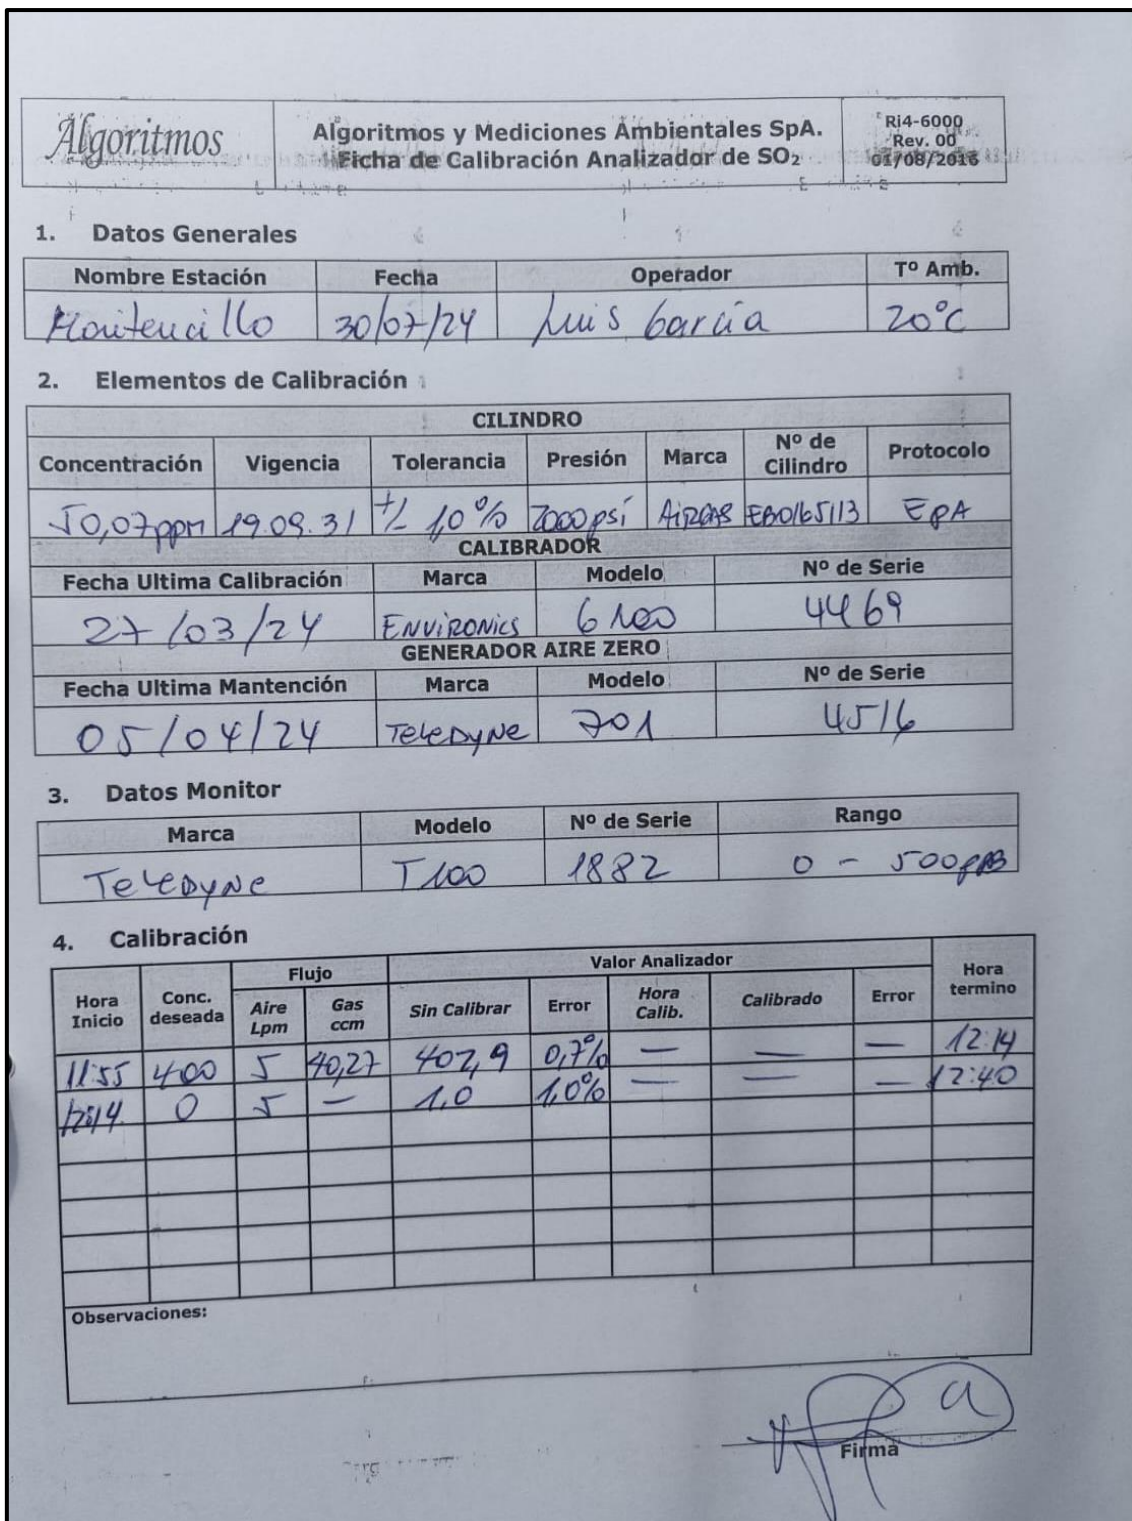 Algoritmos
Algoritmos y Mediciones Ambientales SpA.
Ficha de Calibración Analizador de SO₂
Ri4-6000
Rev. 00
01/08/2016
1. Datos Generales
Nombre Estación Fecha Operador Tº Amb.
Maitencillo 30/07/24 Luis García 20°C
2. Elementos de Calibración
CILINDRO
Concentración Vigencia Tolerancia Presión Marca Nº de Cilindro Protocolo
50,07ppm 19.09.31 +/- 1,0% 2000psi AiRGAS EB0165113 EPA
CALIBRADOR
Fecha Ultima Calibración Marca Modelo Nº de Serie
27/03/24 ENViRONiCS 6100 4469
GENERADOR AIRE ZERO
Fecha Ultima Mantención Marca Modelo Nº de Serie
05/04/24 TeLeDyNe 701 4516
3. Datos Monitor
Marca Modelo Nº de Serie Rango
TeLeDyNe T100 1882 0 - 500ppB
4. Calibración
Flujo Valor Analizador
Hora Inicio Conc. deseada Aire Lpm Gas ccm Sin Calibrar Error Hora Calib. Calibrado Error Hora termino
11:55 400 5 40,27 402,9 0,7% — — — 12:14
12:14 0 5 — 1,0 1,0% — — — 12:40
Observaciones:
Firma